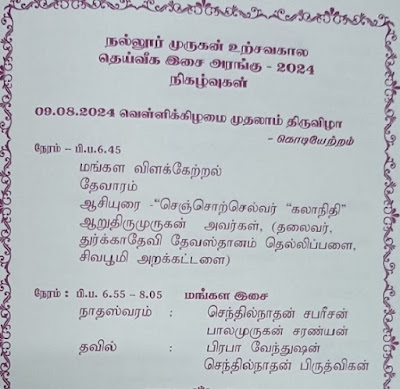 நல்லூர் முருகன் உற்சவகால
தெய்வீக இசை அரங்கு - 2024
நிகழ்வுகள்
09.08.2024 வெள்ளிக்கிழமை முதலாம் திருவிழா
- கொடியேற்றம்
நேரம் – பி.ப.6.45
மங்கள விளக்கேற்றல்
தேவாரம்
ஆசியுரை -“செஞ்சொற்செல்வர் “கலாநிதி”
ஆறுதிருமுருகன் அவர்கள், (தலைவர்,
துர்க்காதேவி தேவஸ்தானம் தெல்லிப்பளை,
சிவபூமி அறக்கட்டளை)
நேரம் : பி.ப. 6.55 – 8.05 மங்கள இசை
நாதஸ்வரம் : செந்தில்நாதன் சபரீசன்
பாலமுருகன் சரண்யன்
தவில் : பிரபா வேந்துஷன்
செந்தில்நாதன் பிருத்விகன்